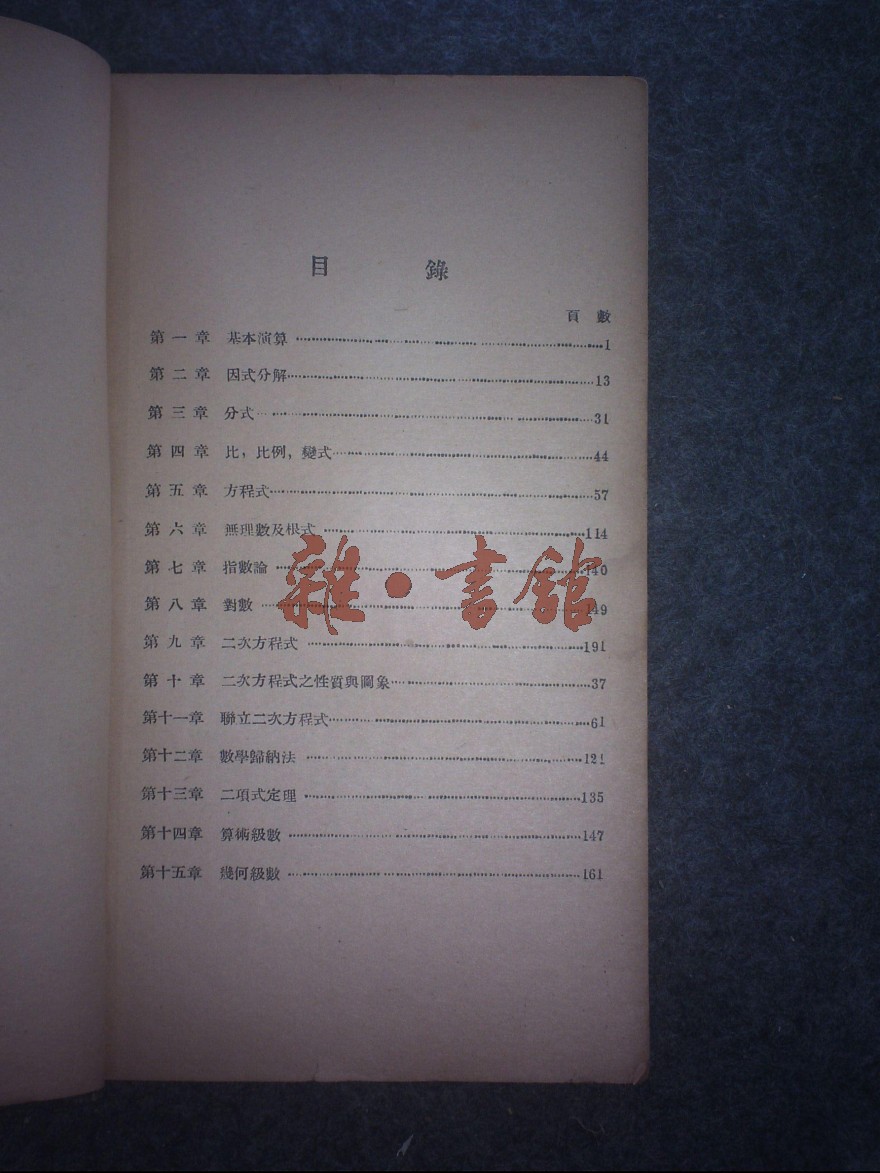 目 錄
頁 數
第 一 章 基本演算 1
第 二 章 因式分解 13
第 三 章 分式 31
第 四 章 比，比例，變式 44
第 五 章 方程式 57
第 六 章 無理數及根式 114
第 七 章 指數論 140
第 八 章 對數 149
雜·書館
第 九 章 二次方程式 191
第 十 章 二次方程式之性質與圖象 37
第十一章 聯立二次方程式 61
第十二章 數學歸納法 121
第十三章 二項式定理 135
第十四章 算術級數 147
第十五章 幾何級數 161